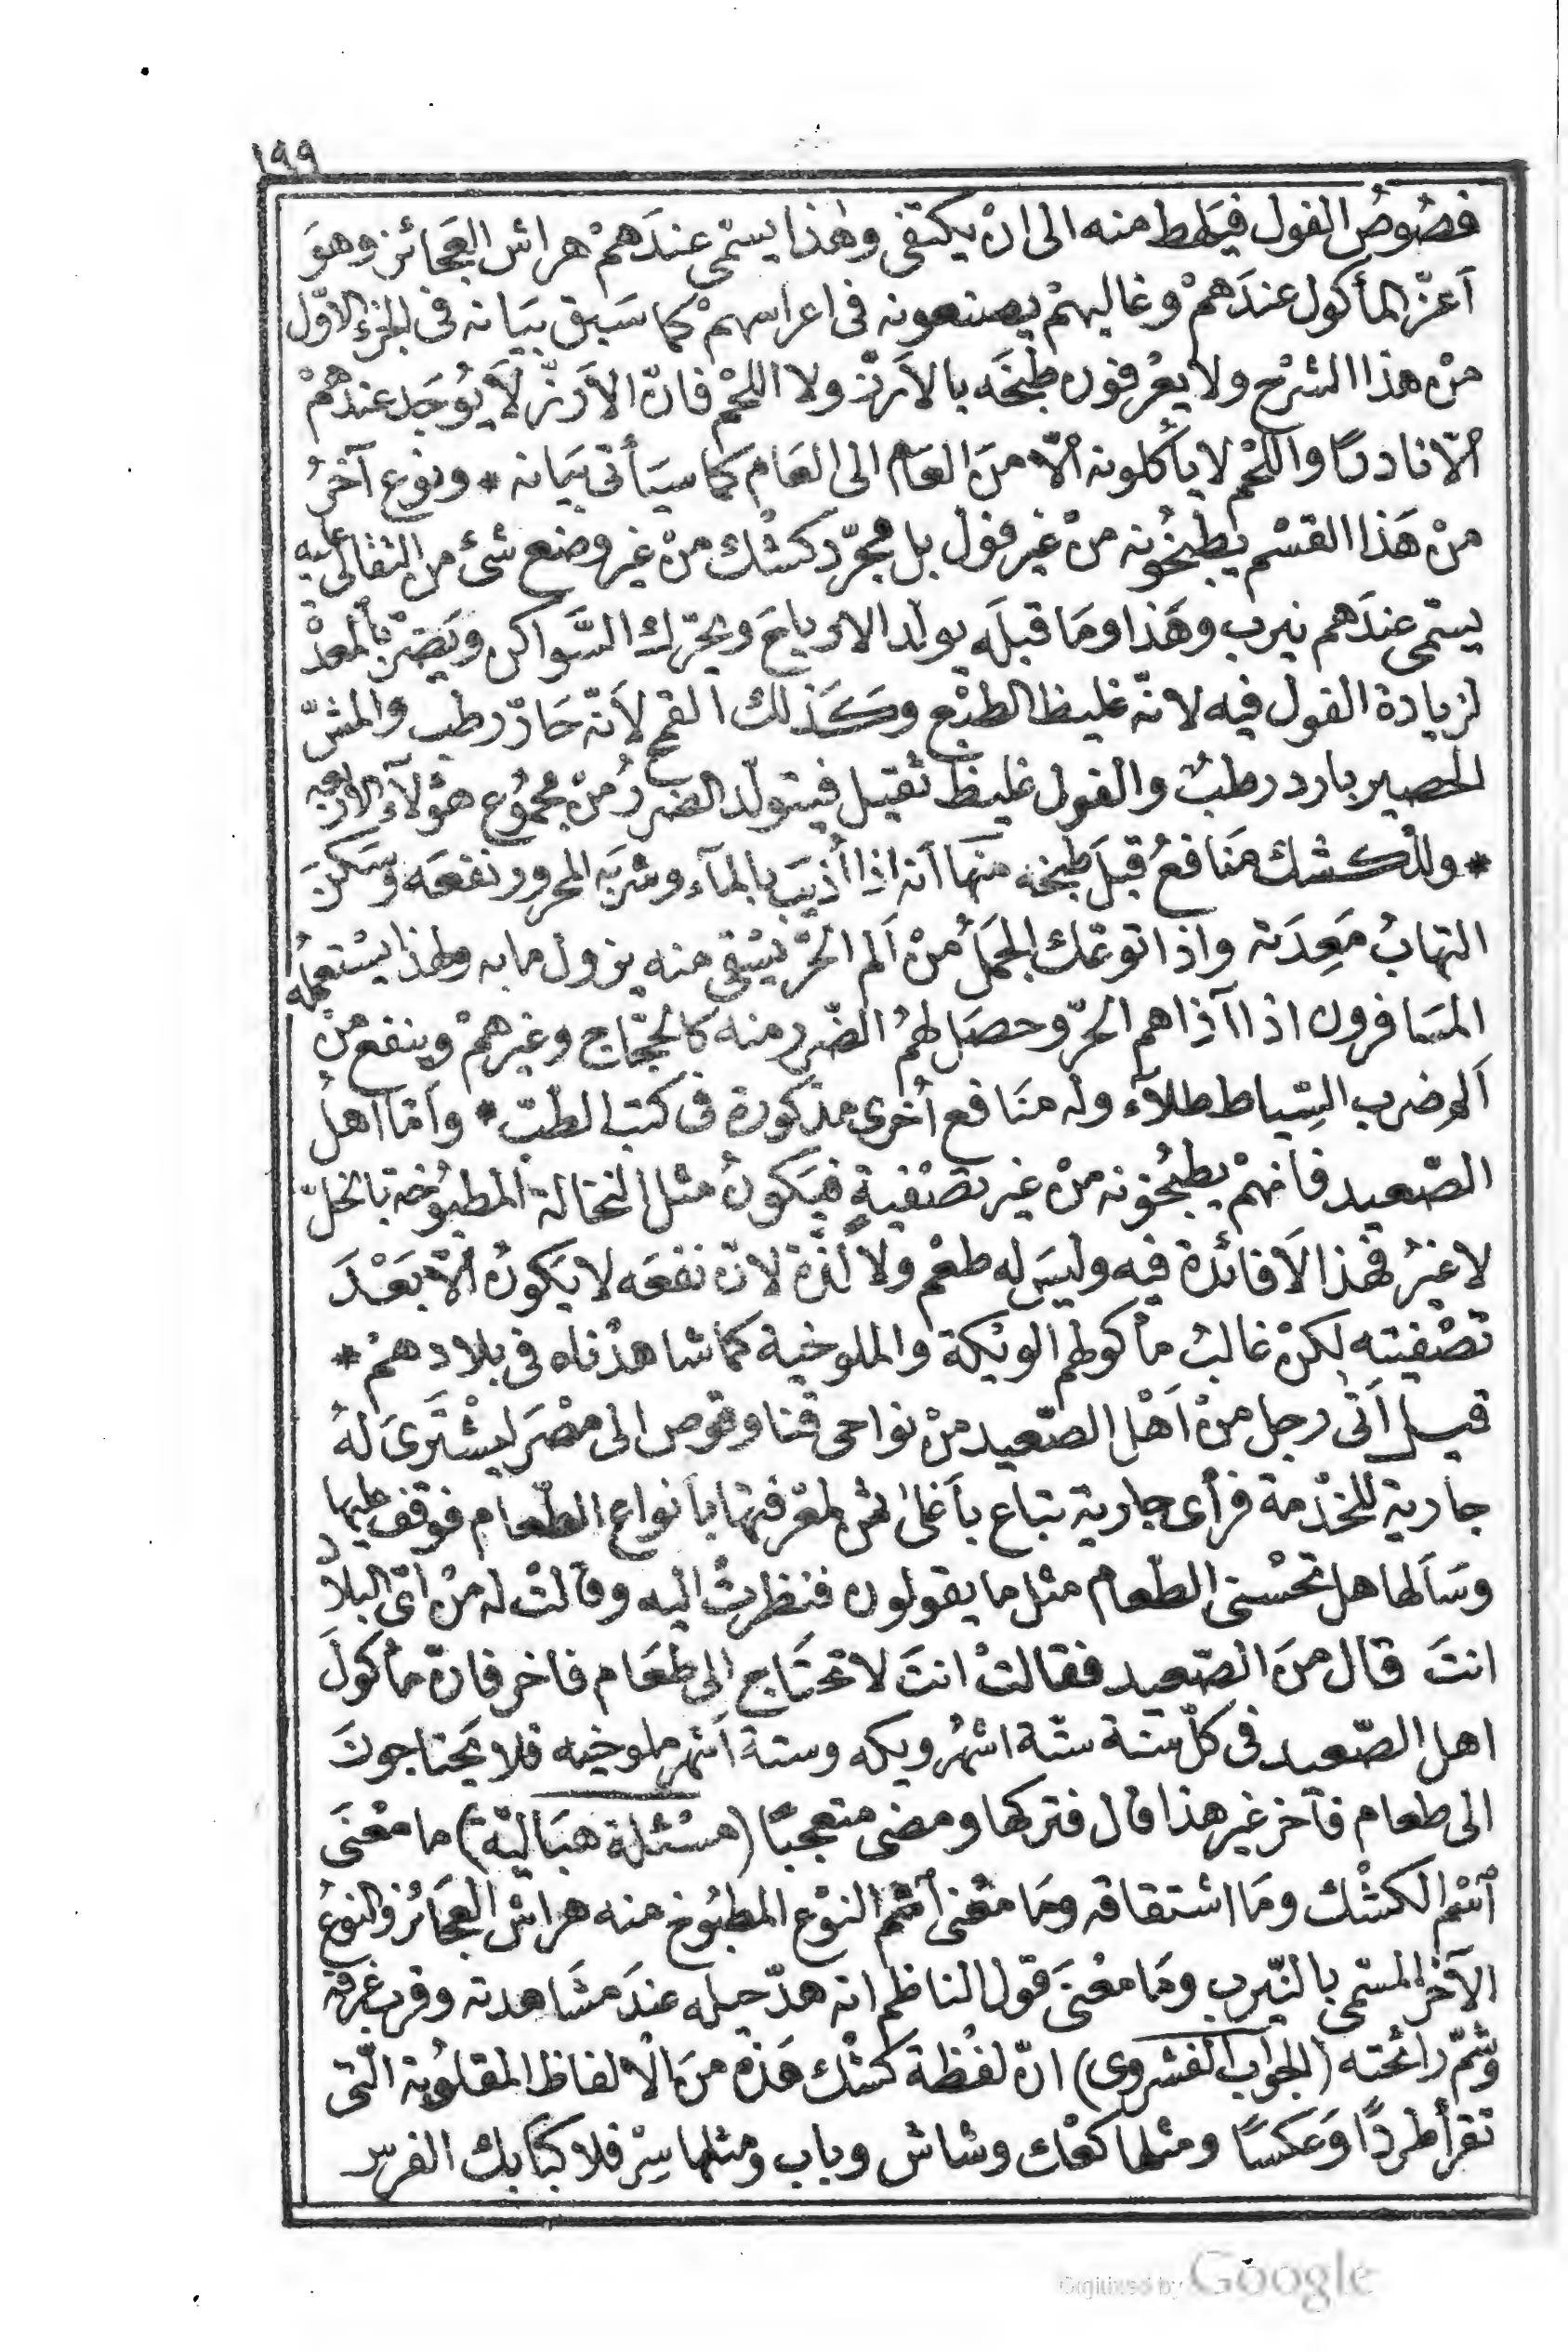 ١٩٩
فصُوصُ الفول فيَلطط منه الى انْ يكتفى وهٰذا يسمّى عندَهمْ هراش العجَائز وهوَ
أعزّ المأكول عندَهمْ وغالبهمْ يصنعونه فى اعراسهمْ كما سَبق بيَانه فى الجزء الاوّل
منْ هذا الشرْح ولا يعْرفون طبْخَه بالأرزّ ولا اللحْم فانّ الأرزّ لَا يُوجَد عندهمْ
الّا نادرًا واللحْم لا يأكلونه الّا منَ العَام الى العَام كما سيَأتى بيَانه * ونوع آخرُ
منْ هَذا القسْم يطبخُونه منْ غير فول بل مجرّد كشْك منْ غير وضع شئ من الثقالى عليه
يسمّى عندَهم نيرب وهَذا وما قبلَه يولد الارياحَ ويحرّك السَّواكن ويَضرّ بالمعدْ
لزيادة الفول فيه لانّه غليظ الطبْع وكَذلك القمح لأنّه حَارّ رطب والمشّ
الحصير بارد رطبٌ والفول غليظ ثقيل فيتولّد الضررُ منْ مجمُوع هؤلآء الاربعه
* وللْكشك منَافعُ قبلَ طبْخه منهَا أنه اذا أُذيبَ بالمآء وشربَه المحرور نفعَه وسَكنَ
التهابُ مَعِدَته واذا توعّك الجمَلُ منْ ألم الحرْ يسْقى منه يزول مابه ولهذا يسْتعملُه
المسَافرون اذا آذاهم الحرّ وحصَل لهمُ الضّرر منه كالحجّاج وغيرهمْ وينفع منْ
ألم ضرب السِّياط طلآء وله منَافع أخرى مذكورة فى كتب الطبّ * وأمّا أهلُ
الصّعيد فانهمْ يطبخُونه منْ غير تصْفيةٍ فيَكونُ مثل النخالة المطبُوخه بالخلّ
لاغيرُ فهذا لَا فائدة فيه وليسَ له طعْم ولا لذّة لانّ نفعَه لا يكونُ الّا بَعْدَ
تصْفيته لكنْ غالبُ مأكولهم الويْكة والملوخية كما شاهدْناه فى بلادهمْ *
قيل أتى رجل منْ أهْل الصّعيد منْ نواحى قنا وقوص الى مصْرَ ليشْترىَ لهُ
جارية للخدْمة فرأى جارية تباع بأغلى ثمن لمعْرفتها بأنواع الطّعام فوقف عليها
وسَألها هل تحْسنى الطّعام مثل ما يقولون فنظرتْ اليه وقالتْ له منْ أىّ البلاد
انتَ قال منَ الصّعيد فقالتْ انتَ لا تحْتَاج الى طعَام فاخر فانّ مأكولَ
اهل الصّعيد فى كلّ سَنة ستّة اشهُر ويكه وستة أشهر ملوخيه فلا يحْتاجونَ
الى طعام فآخر غير هذا قال فتركها ومضى متعجّبًا (مسْئلة هبَاليّة) ما معْنَى
اسْم الكشْك ومَا اشتقاقه ومَا معْنى اسْم النوْع المطبُوخ منه هراشْ العجَائز والنوعُ
الآخرُ المسّمى بالنّيرب ومَا معْنَى قول الناظم انه هدّ حيله عندَ مشَاهدته وقرب غرفه
وشمّ رائحته (الجواب الفشروى) انّ لفْظة كشْك هَذه منَ الْالفاظ المقلوُبة الّتى
تقرأ طرْدًا وَعكسًا ومثلها كعْك وشاش وباب ومثلها سِرْ فلا كبَا بك الفرس
Digitized by Google